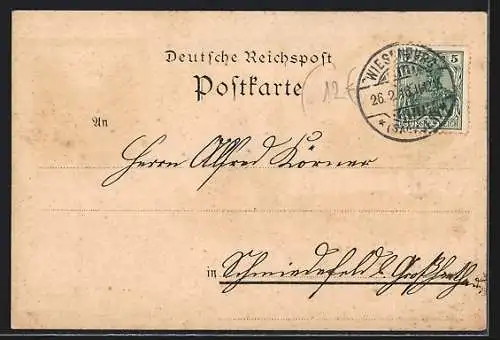 Deutsche Reichspost
Postkarte
12€
WIESENBURG
5
26.2.
(SACHSEN)
An
Herrn Alfred Körner
in Schmiedefeld b. Großharthau